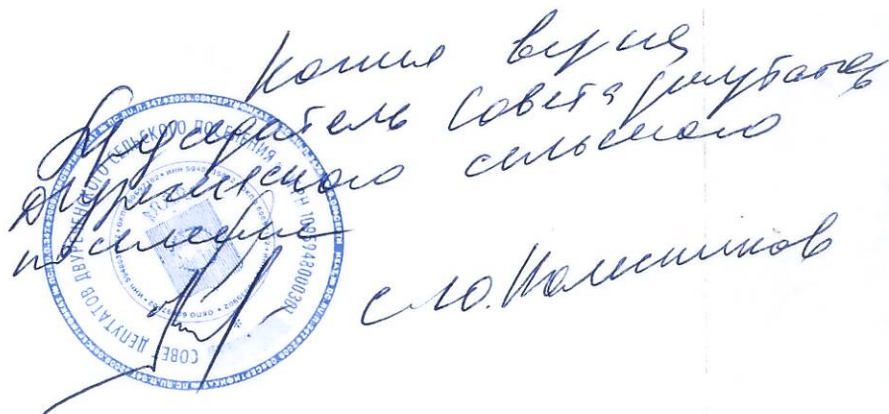 Копия верна
Председатель Совета депутатов
Двуреченского сельского
поселения
С.Ю. Колесников
СОВЕТ ДЕПУТАТОВ ДВУРЕЧЕНСКОГО СЕЛЬСКОГО ПОСЕЛЕНИЯ